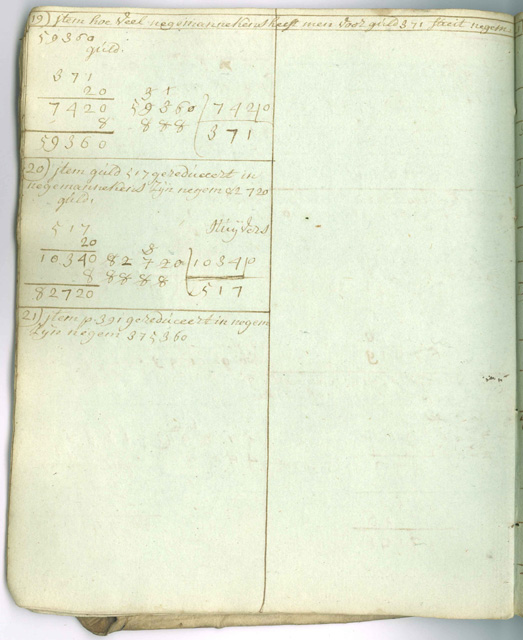 19) Jtem hoe veel negemannekens heeft men voor guld 371 facit negem
59360
guld.
371
20
7420
8
59360
31
59360 7420
888 371
20) Jtem guld 517 gereduceert in
negemannekens Zijn negem 82720
guld.
517 Stuyvers
20
10340
8
82720
8
82720 10340
8888 517
21) Jtem p 391 gereduceert in negem
Zijn negem 375360